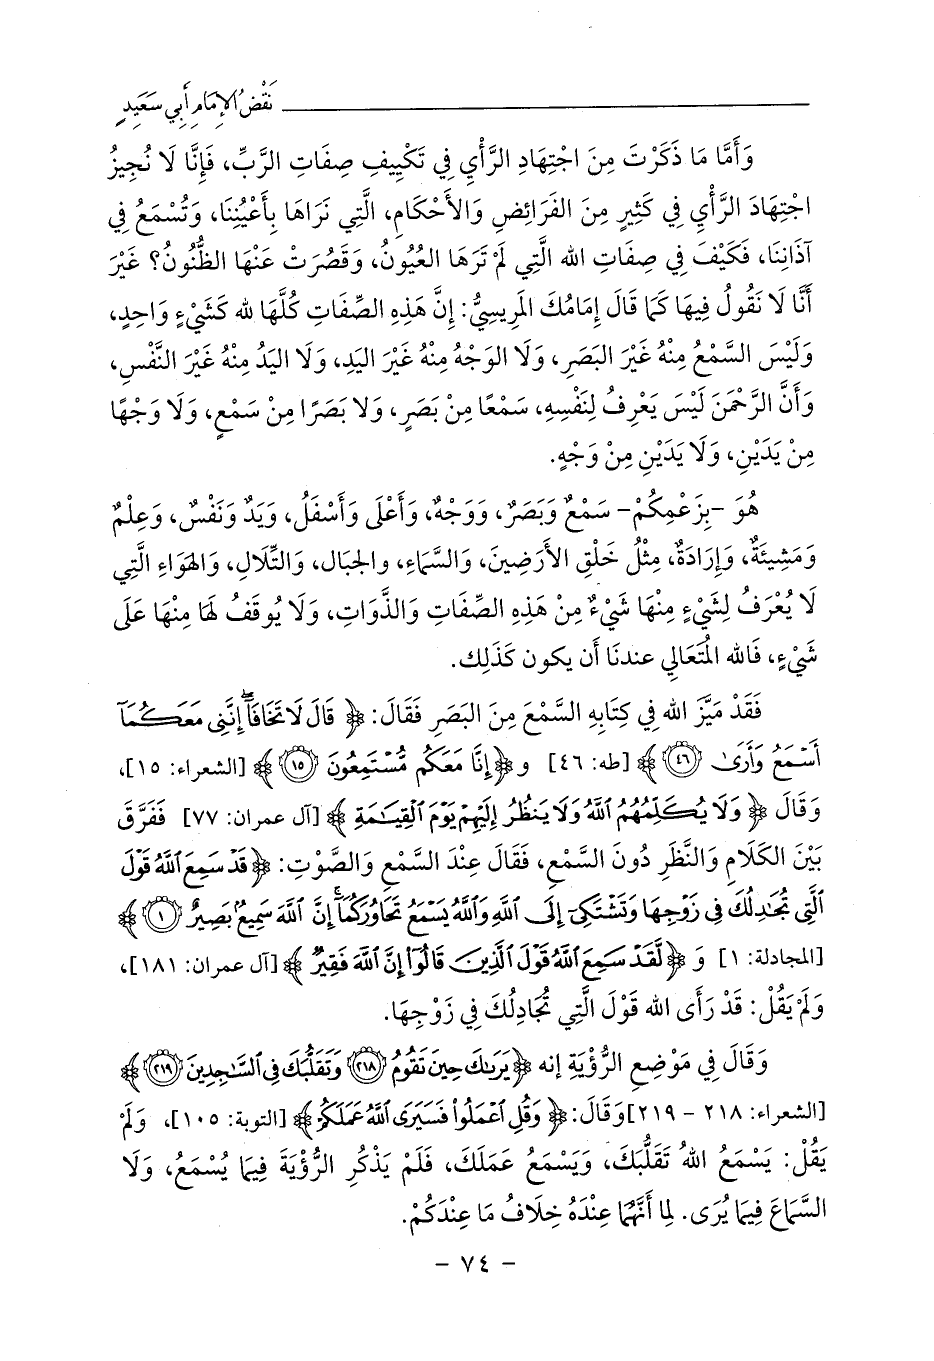 نَقْضُ الإِمَامِ أَبِي سَعِيدٍ
وَأَمَّا مَا ذَكَرْتَ مِنَ اجْتِهَادِ الرَّأْيِ فِي تَكْيِيفِ صِفَاتِ الرَّبِّ، فَإِنَّا لَا نُجِيزُ
اجْتِهَادَ الرَّأْيِ فِي كَثِيرٍ مِنَ الفَرَائِضِ وَالأَحْكَامِ، الَّتِي نَرَاهَا بِأَعْيُنِنَا، وَتُسْمَعُ فِي
آذَانِنَا، فَكَيْفَ فِي صِفَاتِ الله الَّتِي لَمْ تَرَهَا العُيُونُ، وَقَصُرَتْ عَنْهَا الظُّنُونُ؟ غَيْرَ
أَنَّا لَا نَقُولُ فِيهَا كَمَا قَالَ إِمَامُكَ المَرِيسِيُّ: إِنَّ هَذِهِ الصِّفَاتِ كُلَّهَا لله كَشَيْءٍ وَاحِدٍ،
وَلَيْسَ السَّمْعُ مِنْهُ غَيْرَ البَصَرِ، وَلَا الوَجْهُ مِنْهُ غَيْرَ اليَدِ، وَلَا اليَدُ مِنْهُ غَيْرَ النَّفْسِ،
وَأَنَّ الرَّحْمَنَ لَيْسَ يَعْرِفُ لِنَفْسِهِ، سَمْعًا مِنْ بَصَرٍ، وَلا بَصَرًا مِنْ سَمْعٍ، وَلَا وَجْهًا
مِنْ يَدَيْنِ، وَلَا يَدَيْنِ مِنْ وَجْهٍ.
هُوَ -بِزَعْمِكُمْ- سَمْعٌ وَبَصَرٌ، وَوَجْهٌ، وَأَعْلَى وَأَسْفَلُ، وَيَدٌ وَنَفْسٌ، وَعِلْمٌ
وَمَشِيئَةٌ، وَإِرَادَةٌ، مِثْلُ خَلْقِ الأَرَضِينَ، وَالسَّمَاءِ، والجِبَال، وَالتِّلَالِ، وَالهَوَاءِ الَّتِي
لَا يُعْرَفُ لِشَيْءٍ مِنْهَا شَيْءٌ مِنْ هَذِهِ الصِّفَاتِ وَالذَّوَاتِ، وَلَا يُوقَفُ لَهَا مِنْهَا عَلَى
شَيْءٍ، فَالله المُتَعَالِي عندنَا أَن يكون كَذَلِك.
فَقَدْ مَيَّزَ الله فِي كِتَابِهِ السَّمْعَ مِنَ البَصَرِ فَقَالَ: ﴿ قَالَ لَا تَخَافَآ إِنَّنِى مَعَكُمَآ
أَسْمَعُ وَأَرَىٰ ﴿٤٦﴾ ﴾ [طه: ٤٦] و ﴿ إِنَّا مَعَكُم مُّسْتَمِعُونَ ﴿١٥﴾ ﴾ [الشعراء: ١٥]،
وَقَالَ ﴿ وَلَا يُكَلِّمُهُمُ ٱللَّهُ وَلَا يَنظُرُ إِلَيْهِمْ يَوْمَ ٱلْقِيَـٰمَةِ ﴾ [آل عمران: ٧٧] فَفَرَّقَ
بَيْنَ الكَلَامِ وَالنَّظَرِ دُونَ السَّمْعِ، فَقَالَ عِنْدَ السَّمْعِ وَالصَّوْتِ: ﴿ قَدْ سَمِعَ ٱللَّهُ قَوْلَ
ٱلَّتِى تُجَـٰدِلُكَ فِى زَوْجِهَا وَتَشْتَكِىٓ إِلَى ٱللَّهِ وَٱللَّهُ يَسْمَعُ تَحَاوُرَكُمَآ إِنَّ ٱللَّهَ سَمِيعٌۢ بَصِيرٌ ﴿١﴾ ﴾
[المجادلة: ١] وَ ﴿ لَّقَدْ سَمِعَ ٱللَّهُ قَوْلَ ٱلَّذِينَ قَالُوٓا۟ إِنَّ ٱللَّهَ فَقِيرٌ ﴾ [آل عمران: ١٨١]،
وَلَمْ يَقُلْ: قَدْ رَأَى الله قَوْلَ الَّتِي تُجَادِلُكَ فِي زَوْجِهَا.
وَقَالَ فِي مَوْضِعِ الرُّؤْيَةِ إنه ﴿ يَرَىٰكَ حِينَ تَقُومُ ﴿٢١٨﴾ وَتَقَلُّبَكَ فِى ٱلسَّـٰجِدِينَ ﴿٢١٩﴾ ﴾
[الشعراء: ٢١٨ - ٢١٩] وَقَالَ: ﴿ وَقُلِ ٱعْمَلُوا۟ فَسَيَرَى ٱللَّهُ عَمَلَكُمْ ﴾ [التوبة: ١٠٥]، وَلَمْ
يَقُلْ: يَسْمَعُ اللهُ تَقَلُّبَكَ، وَيَسْمَعُ عَمَلَكَ، فَلَمْ يَذْكُرِ الرُّؤْيَةَ فِيمَا يُسْمَعُ، وَلَا
السَّمَاعَ فِيمَا يُرَى. لِمَا أَنَّهُمَا عِنْدَهُ خِلَافُ مَا عِنْدَكُمْ.
- ٧٤ -